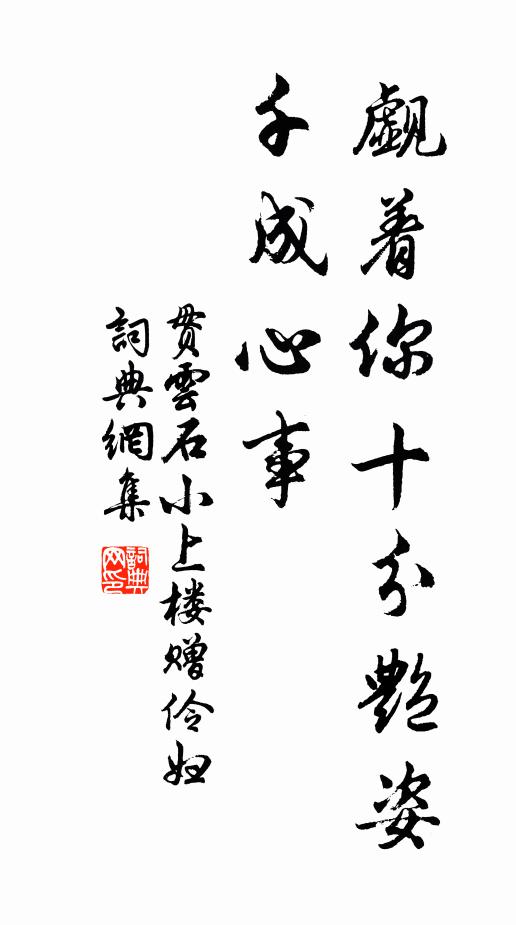 覷着你十分艶姿
千成心事
贯雲石小上楼赠伶妇
詞典網集
詞典网印